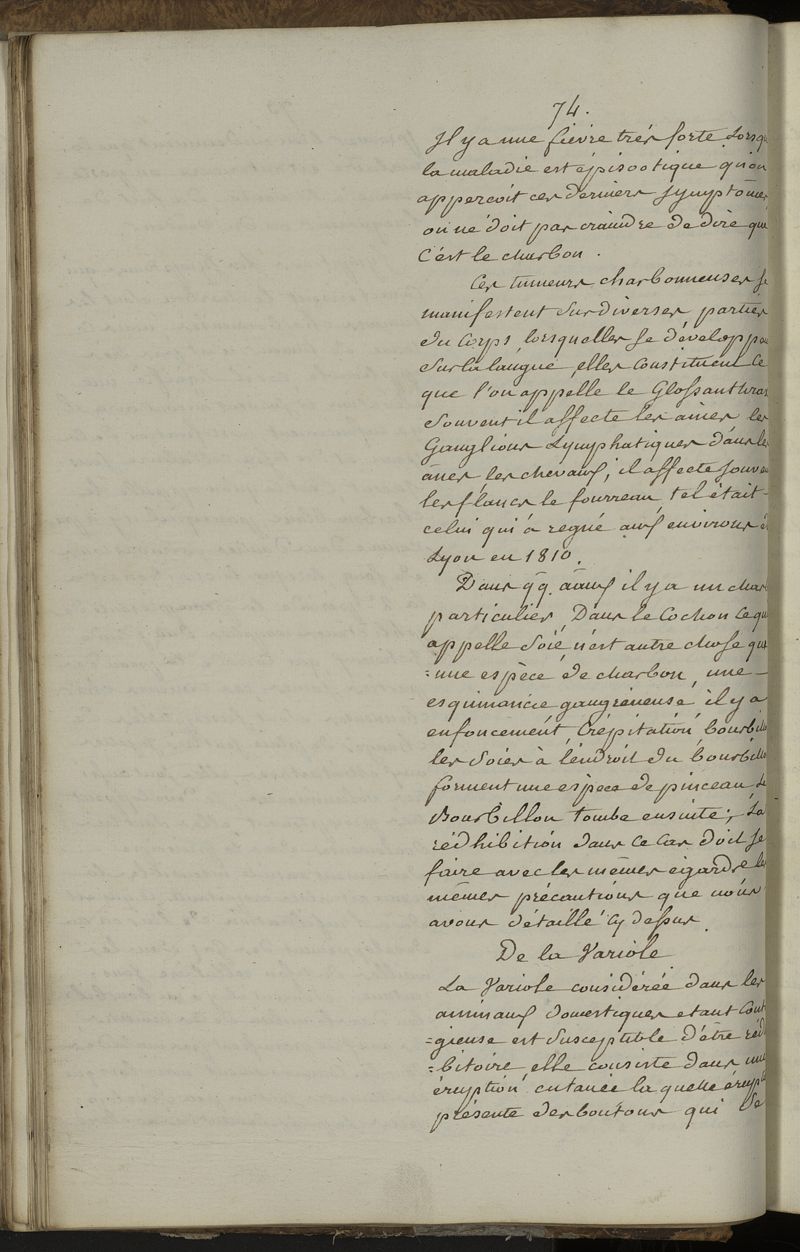 74.
Il y a une fièvre très forte Lorsq
la maladie est épisootique qu'on
apperçoit ces derniers Symptômes
on ne doit pas craindre de dire que
C'est le charbon.
Ces tumeurs charbonneuses se
manifestent sur diverses parties
du Corps, lorsqu'elles se développe
sur la langue, elles Constituent Ce
que l'on appelle le Glossanthrax
Souvent il affecte les aines les
Ganglions Lymphatiques dans les
ânes, les chevaux, il affecte souve
les flancs le fourreau, tel était
celui qui a regné aux environs d
Lyon en 1810.
Dans qq. aaux il y a un char
particulier, Dans le Cochon Ce qu
appelle Soie, n'est autre chose qu
=une espèce de charbon, une
esquinancie gangréneuse, il y a
enfoncement, Crépitation, bourbillo
les Soies à l'endroit du bourbillo
forment une espèce de pinceau Le
Bourbillon tombe ensuite; La
rédhibition dans Ce Cas doit se
faire avec les mêmes égards et les
mêmes précautions que nous
avons détaillé Cy dessus.
De la Variole
La Variole considérée dans les
animaux domestiques etant Cont
=gieuse est Susceptible d'être réd
=bitoire, elle consiste dans une
éruption cutanée la quelle érupt
présente des boutons qui Se